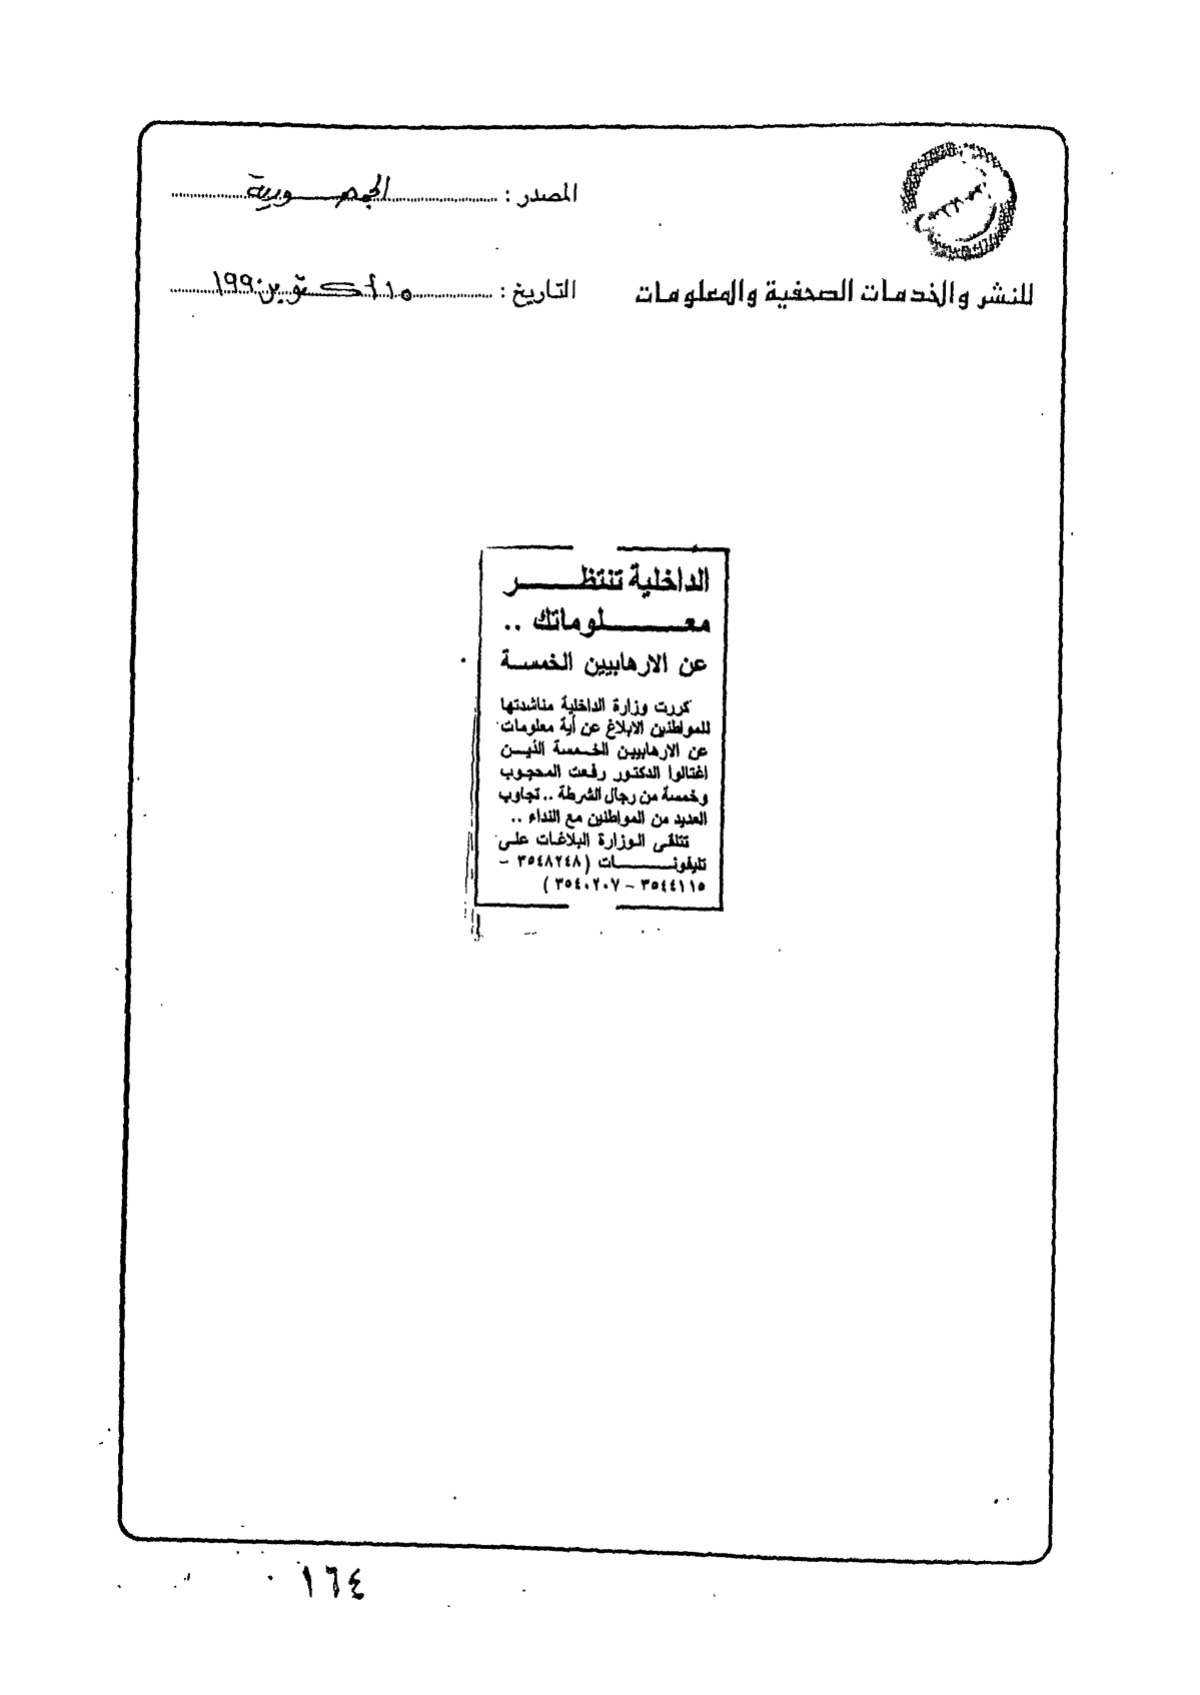 المصدر : الجمهورية
للنشر والخدمات الصحفية والمعلومات
التاريخ : ١٥ أكتوبر ١٩٩٠
الداخلية تنتظر
معلوماتك ..
عن الارهابيين الخمسة
كررت وزارة الداخلية مناشدتها
للمواطنين الابلاغ عن أية معلومات
عن الارهابيين الخمسة الذين
اغتالوا الدكتور رفعت المحجوب
وخمسة من رجال الشرطة .. تجاوب
العديد من المواطنين مع النداء ..
تتلقى الوزارة البلاغات على
تليفونات (٣٥٤٨٢٤٨ -
٣٥٤٤١١٥ - ٣٥٤٠٢٠٧)
١٦٤